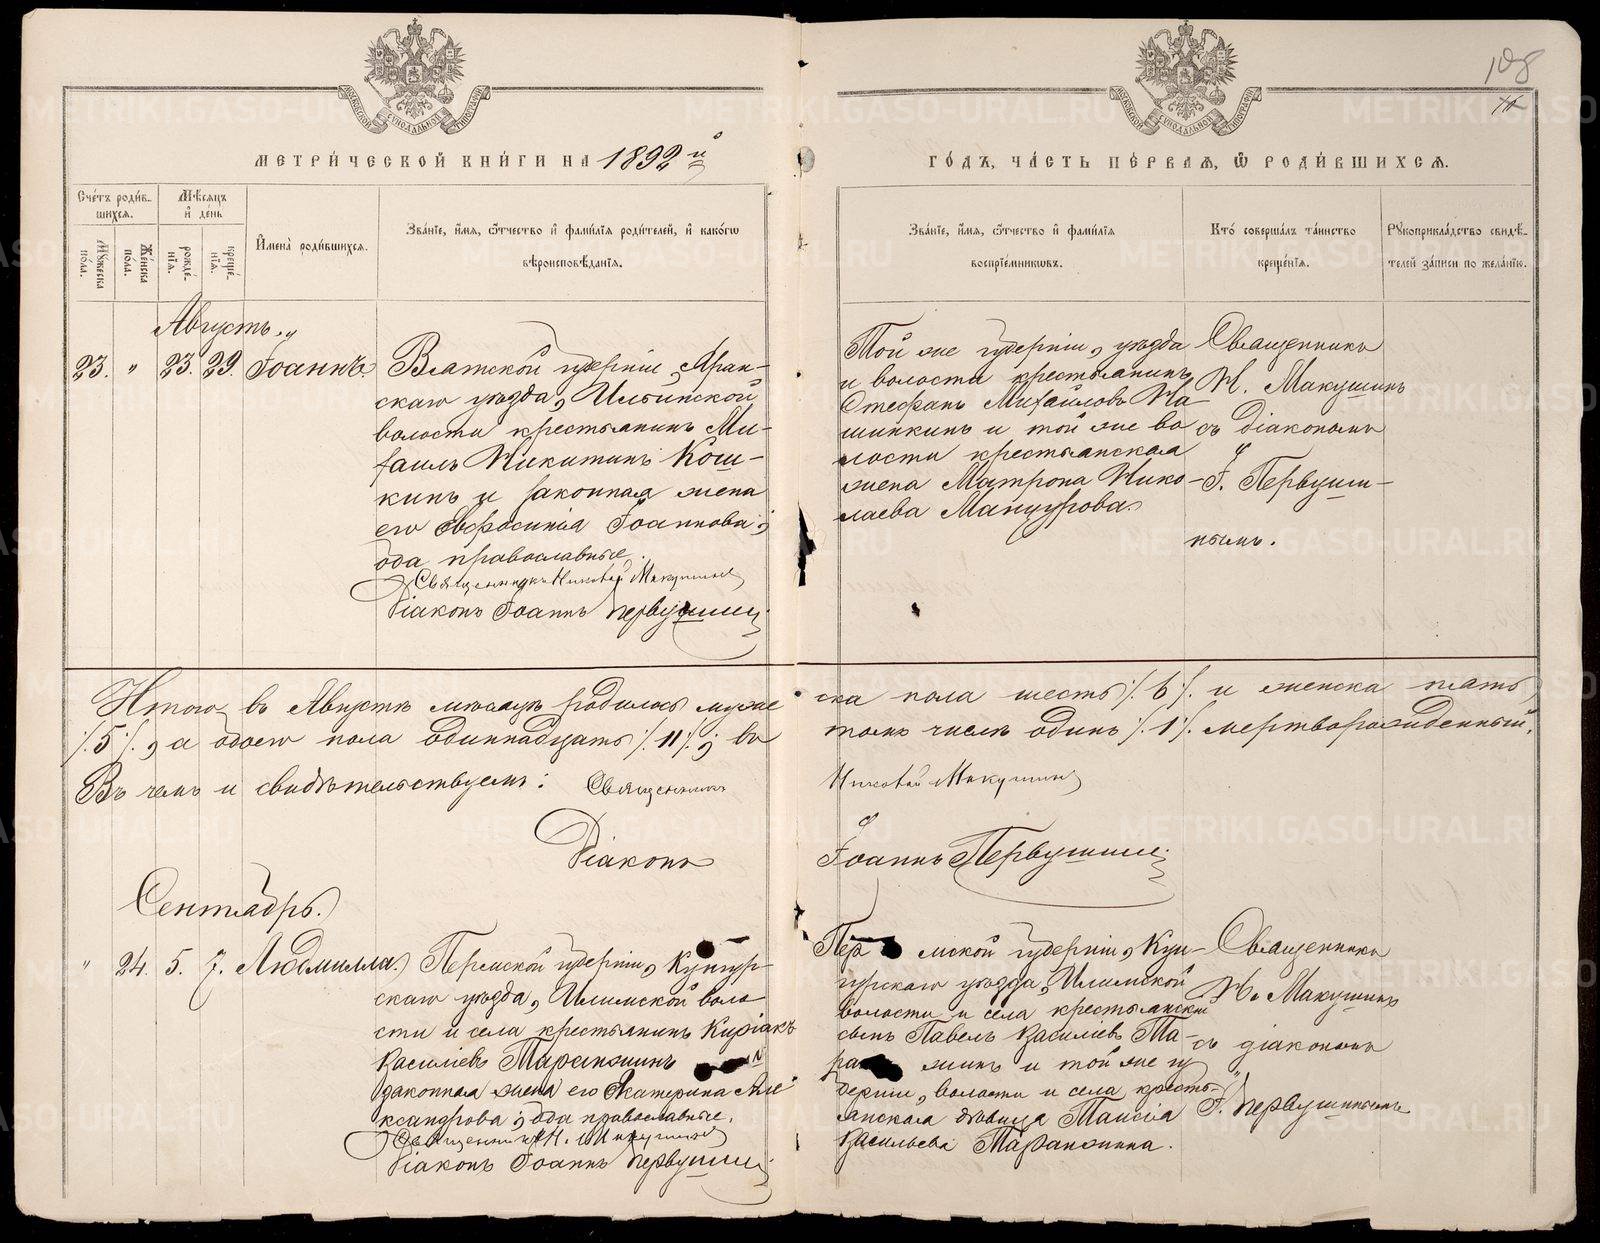 108
МЕТРИ́ЧЕСКОЙ КНИ́ГИ НА 1892й
ГО́ДЪ, ЧА́СТЬ ПЕ́РВАѦ, Ѿ РОДИ́ВШИХСѦ.
Сче́тъ роди́вшихсѧ.
Мѣ́сѧцъ и҆ де́нь
И҆мена̀ роди́вшихсѧ.
Зва́нїе, и҆́мѧ, ѻ҆́тчество и҆ фамі́лїѧ роди́телей, и҆ како́гѡ
вѣроисповѣ́данїѧ.
Мꙋ́жеска по́ла.
Же́нска по́ла.
рожде́нїѧ.
креще́нїѧ.
Зва́нїе, и҆́мѧ, ѻ҆́тчество и҆ фамі́лїѧ
воспрїе́мникѡвъ.
Кто̀ соверша́лъ та́инство
креще́нїѧ.
Рꙋкоприкла́дство свидѣ́-
телей за́писи по жела́нїю.
Августъ
23. " 23. 29. Іоаннъ.
Вятской губерніи, Яран-
скаго уѣзда, Ильинской
волости крестьянинъ Ми-
хаилъ Никитинъ Кош-
кинъ и законная жена
его Евфросинія Іоаннова;
оба православные.
Священникъ Николай Макушинъ
Діаконъ Іоаннъ Первушин
Той же губерніи, уѣзда
и волости крестьянинъ
Стефанъ Михайловъ
и той же во
лости крестьянская
жена Матрона Нико-
лаева
Священникъ
Н. Макушинъ
съ діакономъ
І. Первуши-
нымъ.
Итого въ Августѣ мѣсяцѣ родилось муже
ска пола шесть /.6/. и женска пять
/.5/., а обоего пола одиннадцать /.11/.; въ
томъ числѣ одинъ /.1/. мертворожденный.
Въ чемъ и свидѣтельствуемъ: Священникъ
Николай Макушинъ
Діаконъ
Іоаннъ Первушин
Сентябрь.
" 24. 5. 7. Людмилла.
Пермской губерніи, Кунгур-
скаго уѣзда, Илимской воло
сти и села крестьянинъ Киріакъ
Василіевъ Таранжинъ и
законная жена его Екатерина Але
ксандрова; оба православные.
Священникъ Н. Макушинъ
Діаконъ Іоаннъ Первушин
Пермской губерніи, Кун-
гурскаго уѣзда, Илимской
волости и села крестьянскій
сынъ Павелъ Василіевъ Та-
ранжинъ и той же гу
берніи, волости и села кресть-
янская дѣвица Таисія
Васильева Таранжина.
Священникъ
Н. Макушинъ
съ діакономъ
І. Первушинымъ
METRIKI.GASO-URAL.RU